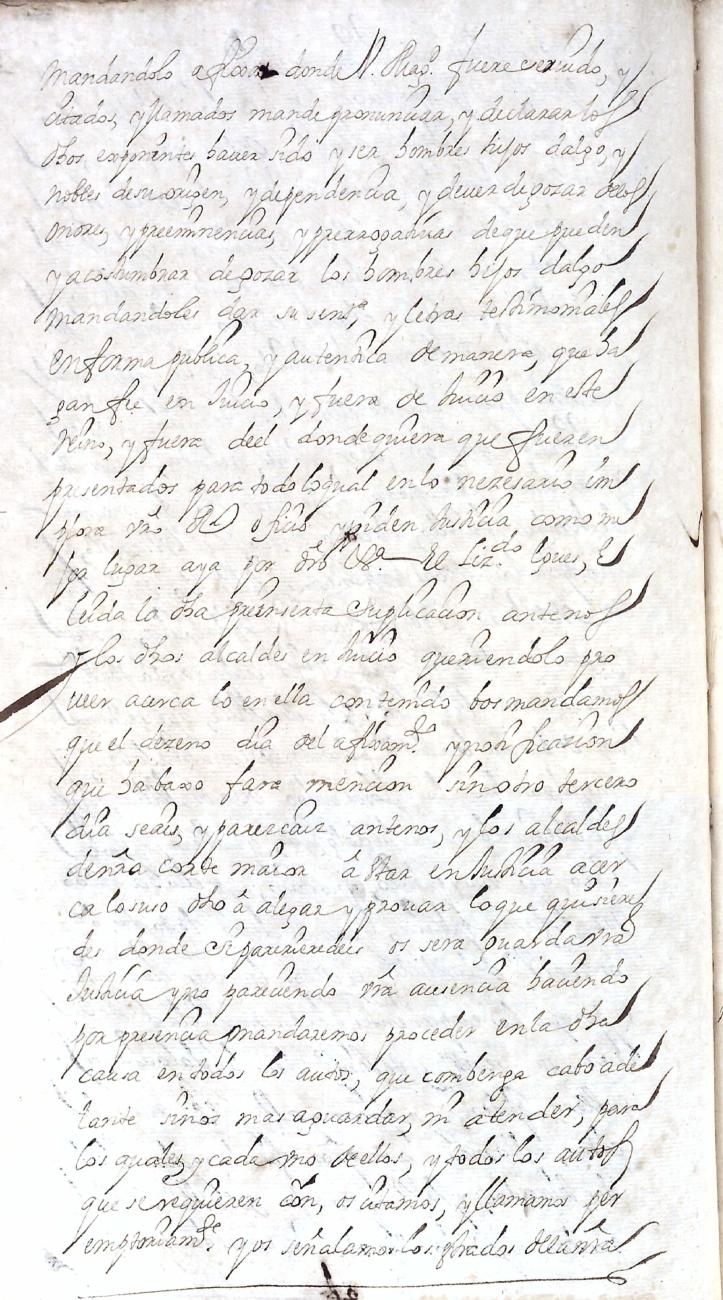 mandandolo afixar donde V. Mag.d fuere servido, y
citados, y llamados mande pronunciar, y declarar los
dhos exponentes haver sido y ser hombres hijos dalgo, y
nobles de su origen, y dependencia, y dever de gozar de los
onores, y preeminencias, y prerrogativas de que pueden
y acostumbrar de gozar los hombres hijos dalgo
mandandoles dar su sent.a, y letras testimoniales
en forma publica, y autentica de manera, que ha
gan fie en Juicio, y fuera de Juicio en este
Reino, y fuera del donde quiera que fueren
presentados para todo lo qual en lo nezesario im
plora vro Rl oficio y piden Justicia como m
or lugar aya por dro &a. El Liz.do
leida la dha preinserta suplicacion ante nos
y los dhos alcaldes en Juicio queriendolo pro
veer acerca lo en ella contenido vos mandamos
que el dezeno dia del afixam.to y notificacion
que habaxo fara mencion sin otro tercero
dia seais, y parezcais ante nos, y los alcaldes
de nra corte maior â Star en Justicia acer
ca lo suso dho â alegar y provar lo que quisiere
des donde si pareziereis os sera guarda vra
Justicia y no pareciendo vra ausencia haviendo
por presencia mandaremos proceder en la dha
causa en todos los autos, que combenga cabo ade
lante sinos mas aguardar, ni atender, para
los quales, y cada uno de ellos, y todos los autos
que se requieren con, os citamos, y llamamos per
emptoriam.te y os señalamos los strados de la nra